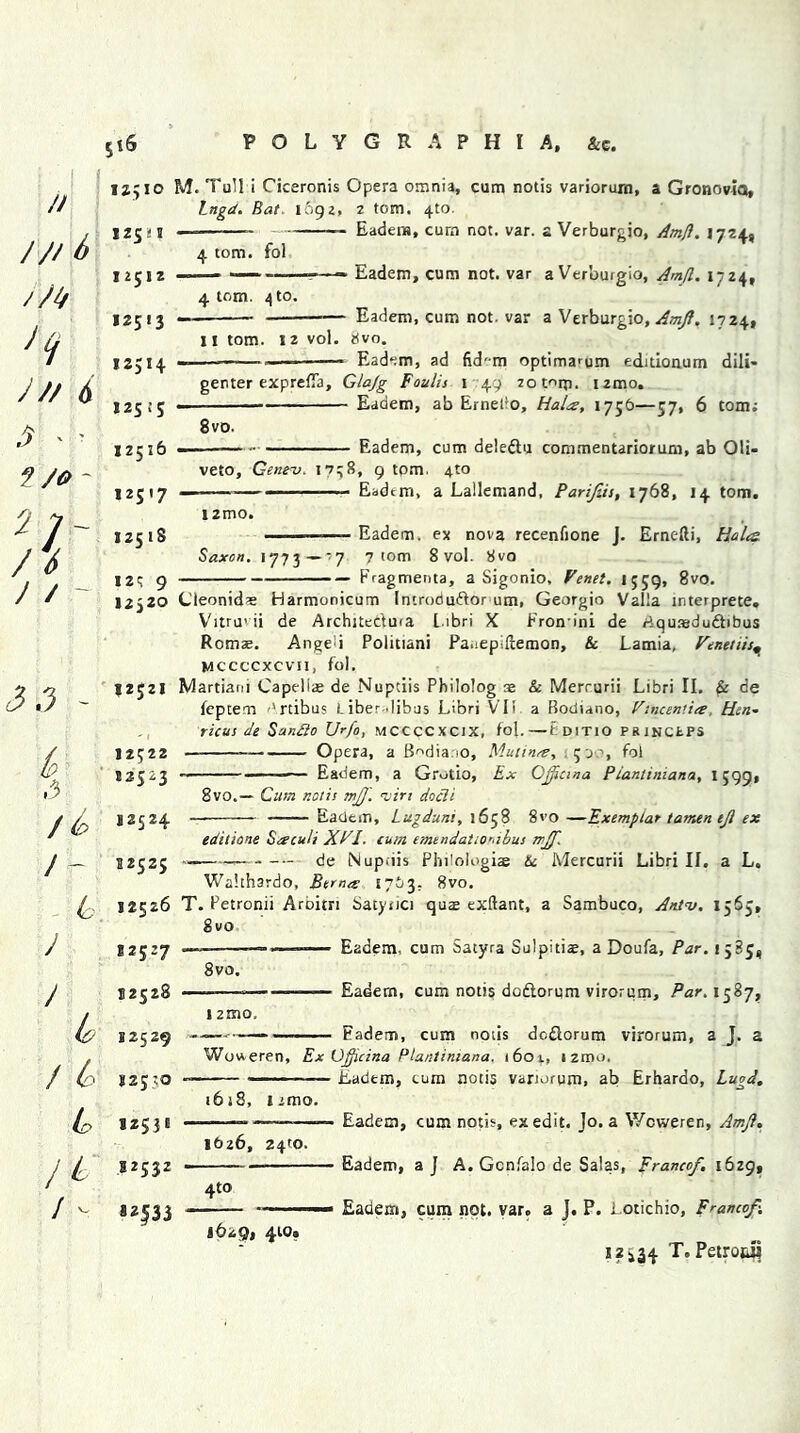 516 POLYGRAPHIA, &c.
12510 M. Tull i Ciceronis Opera omnia, cum notis variorum, a Gronovio,
Lngd. Bat. 1692, 2 tom. 4to.
12511 ——— ——— Eadem, cum not. var. a Verburgio, Amſt. 1724,
4 tom. fol
12512 ——— ——— Eadem, cum not. var a Verburgio, Amſt. 1724,
4 tom. 4to.
12513 ——— ——— Eadem, cum not. var a Verburgio, Amſt. 1724,
11 tom. 12 vol. 8vo.
12514 ——— ——— Eadem, ad fidem optimarum editionum dili-
genter expreſſa, Glaſg Foulis 1749 20 tom. 12mo.
12515 ——— ——— Eadem, ab Erneſto, Halæ, 1756—57, 6 tom.
8vo.
12516 ——— ——— Eadem, cum delectu commentariorum, ab Oli-
veto, Genev. 1758, 9 tom. 4to
12517 ——— ——— Eadem, a Lallemand, Pariſiis, 1768, 14 tom.
12mo.
12518 ——— Eadem, ex nova recenſione J. Erneſti, Halæ
Saxon. 1773—77 7 tom 8 vol. 8vo
125 9 ——— ——— Fragmenta, a Sigonio, Venet. 1559, 8vo.
12520 Cleonidæ Harmonicum Introductor um, Georgio Valla interprete,
Vitruvii de Architectura Libri X Frontini de Aquæductibus
Romæ. Angeli Politiani Panepiſtemon, & Lamia, Venetiis,
MCCCCXCVII, fol.
12521 Martiani Capellæ de Nuptiis Philolog æ & Mercurii Libri II. & de
ſeptem Artibus Liberalibus Libri VII a Bodiano, Vincentiæ, Hen-
ricus de Sancto Urſo, MCCCCXCIX, fol.—EDITIO PRINCEPS
12522 ——— Opera, a Bodiano, Mutinæ, 1500, fol
12523 ——— Eadem, a Grotio, Ex Officina Plantiniana, 1599,
8vo.—Cum notis mſſ. viri docti
12524 ——— Eadem, Lugduni, 1658 8vo—Exemplar tamen eſt ex
editione Sæculi XVI. cum emendationibus mſſ.
12525 ——— de Nuptiis Philologiæ & Mercurii Libri II. a L.
Walthardo, Bernæ 1763. 8vo.
12526 T. Petronii Arbitri Satyrici quæ extant, a Sambuco, Antv. 1565,
8vo
12527 ——— Eadem, cum Satyra Sulpitiæ, a Douſa, Par. 1585,
8vo.
12528 ——— Eadem, cum notis doctorum virorum, Par. 1587,
12mo.
12529 ——— Eadem, cum notis doctorum virorum, a J. a
Woweren, Ex Officina Plantiniana, 1604, 12mo.
12530 ——— Eadem, cum notis variorum, ab Erhardo, Lugd.
1618, 12mo.
12531 ——— Eadem, cum notis, ex edit. Jo. a Woweren, Amſt.
1626, 24to.
12532 ——— Eadem, a J A. Gonſalo de Salas, Francof. 1629,
4to
12533 ——— Eadem, cum not. var. a J. P. Lotichio, Francof.
1629, 4to.
12534 T. Petronii